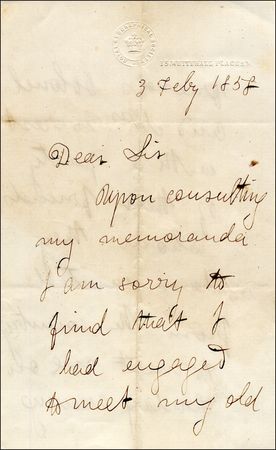 ROYAL GEOGRAPHICAL SOCIETY
15 WHITEHALL PLACE
3 Feby 1858
Dear Sir
Upon consulting
my memoranda
I am sorry to
find that I
had engaged
to meet my old